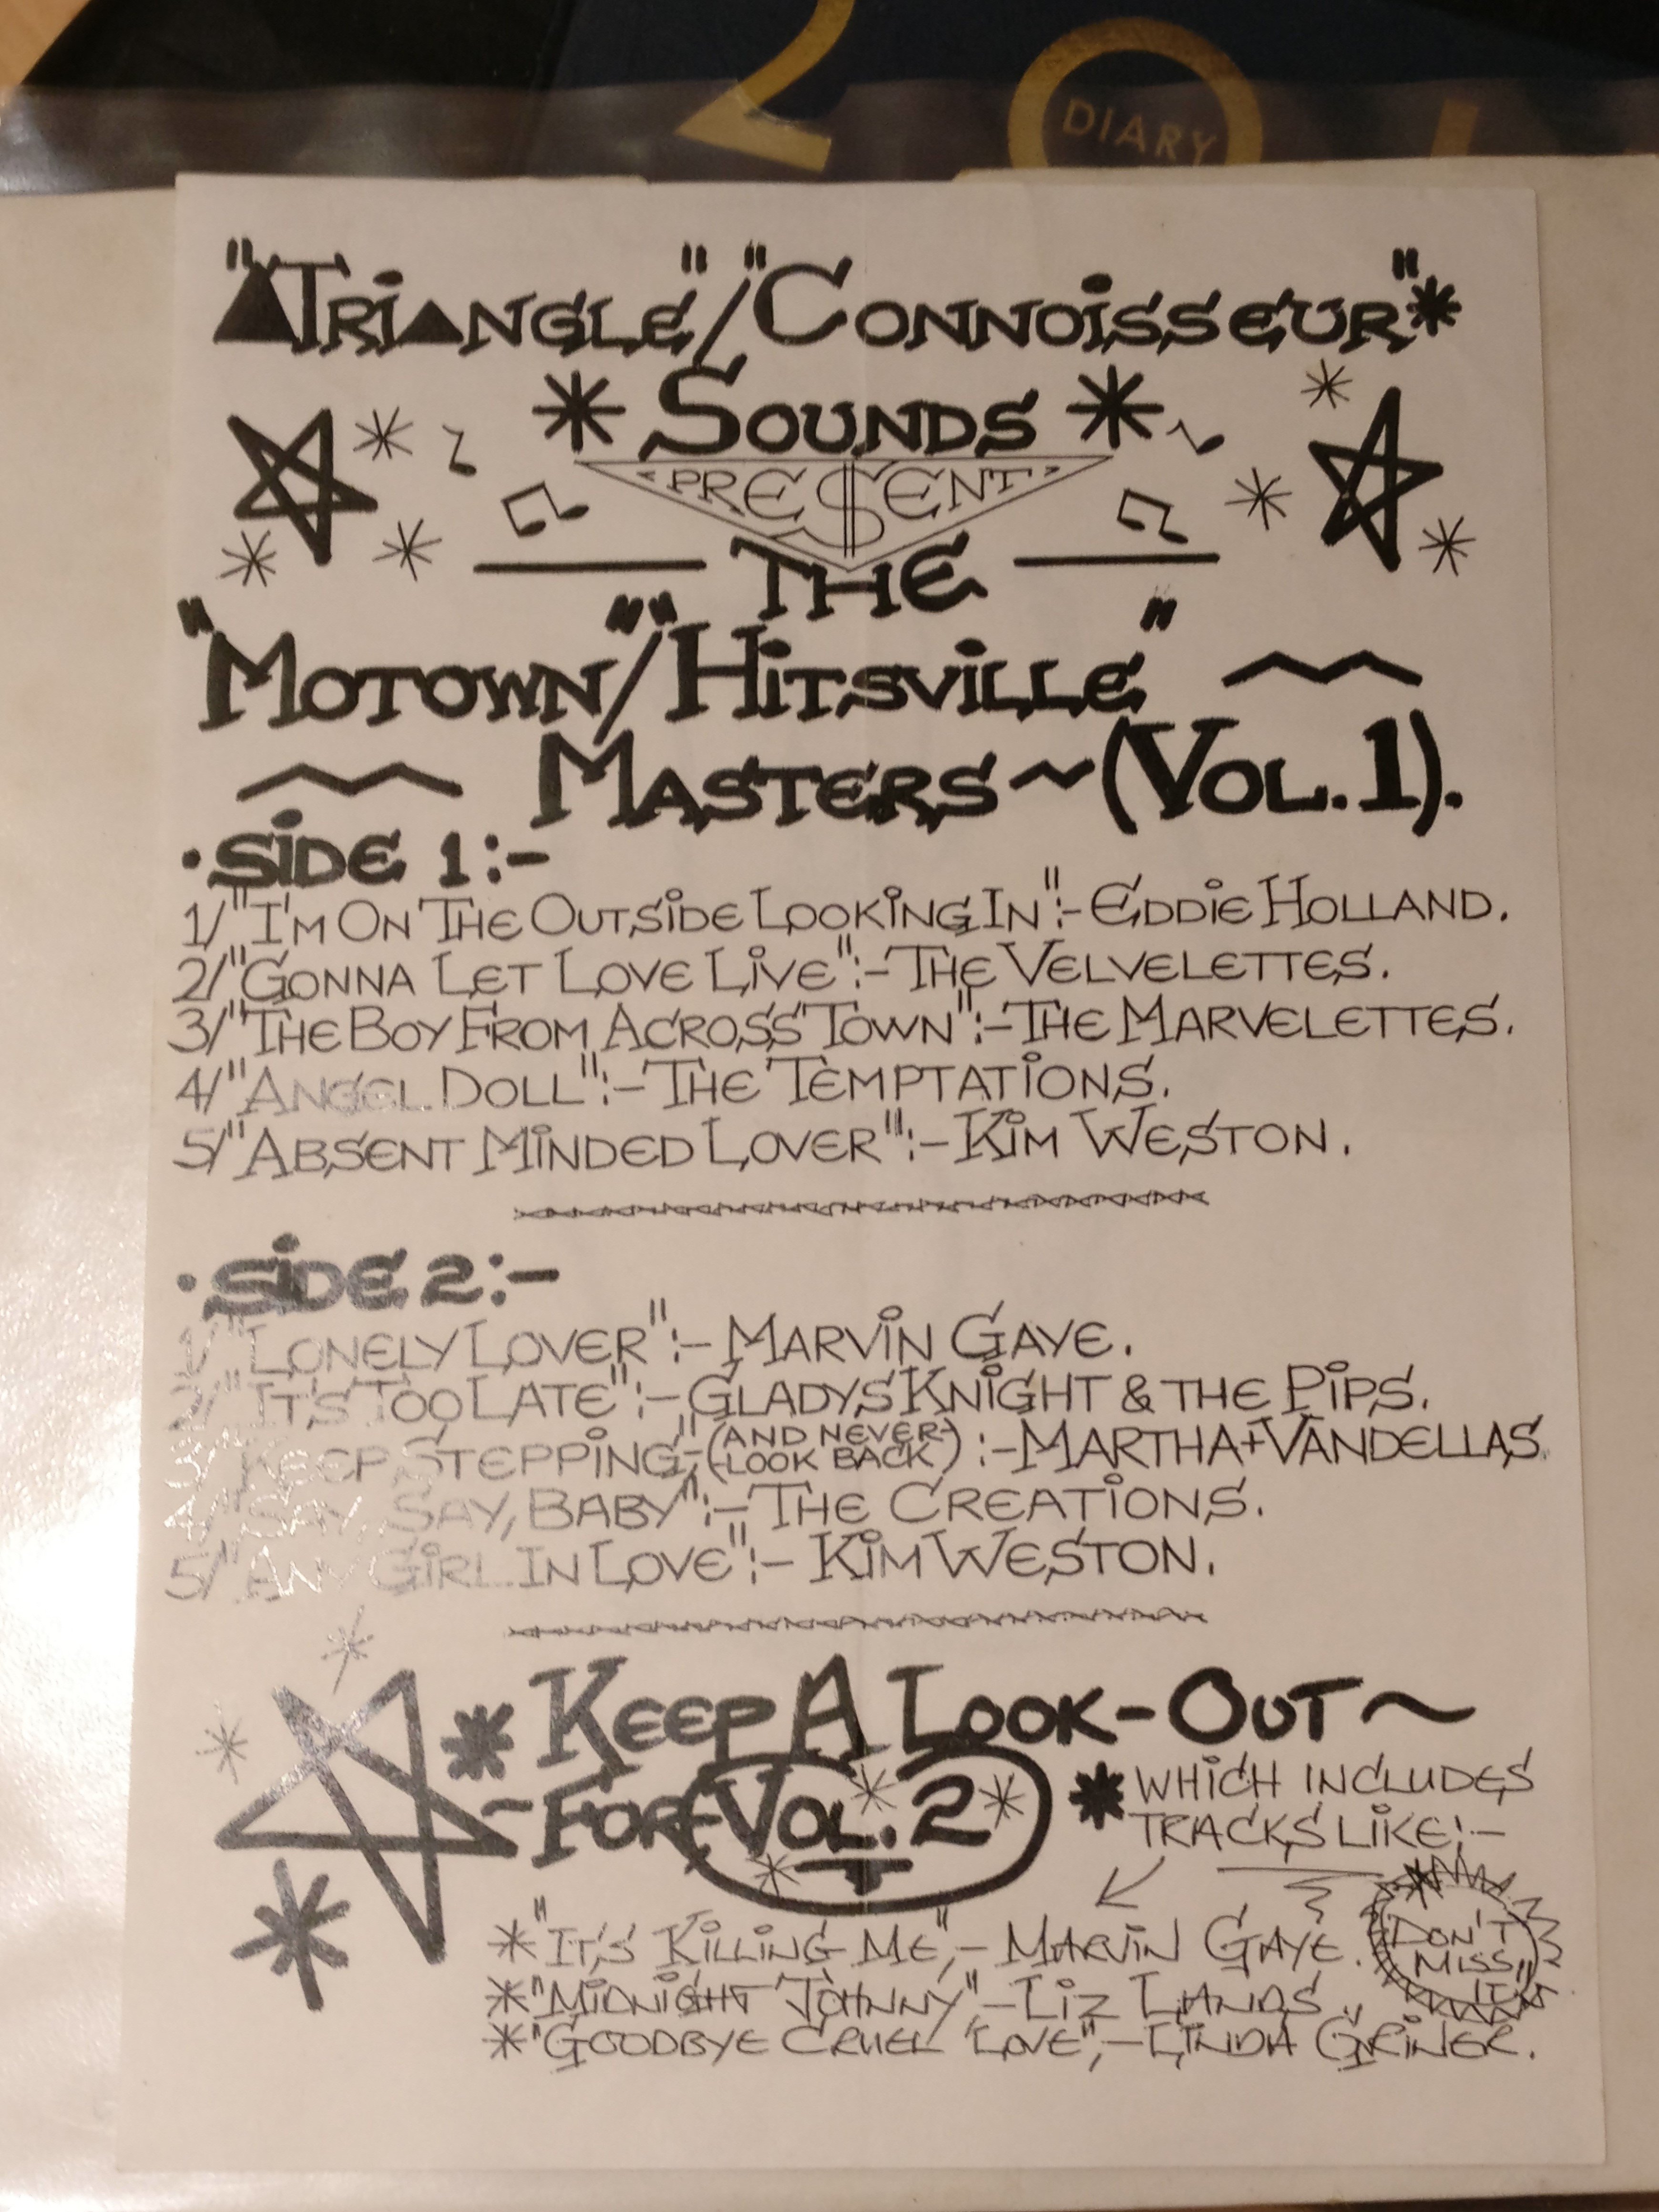 2 0 1
DIARY
"TRIANGLE"/"CONNOISSEUR"*
* SOUNDS *
"PRE$ENT"
THE
"MOTOWN"/"HITSVILLE"
MASTERS ~ (VOL. 1).
• SIDE 1:-
1/ "I'M ON THE OUTSIDE LOOKING IN":- EDDIE HOLLAND.
2/ "GONNA LET LOVE LIVE":- THE VELVELETTES.
3/ "THE BOY FROM ACROSS TOWN":- THE MARVELETTES.
4/ "ANGEL DOLL":- THE TEMPTATIONS.
5/ "ABSENT MINDED LOVER":- KIM WESTON.
• SIDE 2:-
1/ "LONELY LOVER":- MARVIN GAYE.
2/ "IT'S TOO LATE":- GLADYS KNIGHT & THE PIPS.
3/ "KEEP STEPPING",- (AND NEVER-
-LOOK BACK) :- MARTHA + VANDELLAS.
4/ "SAY, SAY, BABY":- THE CREATIONS.
5/ "ANY GIRL IN LOVE":- KIM WESTON.
* KEEP A LOOK-OUT ~
~ FOR VOL. 2
* WHICH INCLUDES
TRACKS LIKE:-
* "IT'S KILLING ME",- MARVIN GAYE.
* "MIDNIGHT JOHNNY",- LIZ LANDS.
* "GOODBYE CRUEL LOVE",- LINDA GRINER.
"DON'T
MISS
IT"